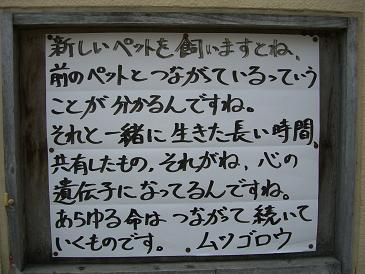 新しいペットを飼いますとね、
前のペットとつながているっていう
ことが分かるんですね。
それと一緒に生きた長い時間、
共有したもの、それがね、心の
遺伝子になってるんですね。
あらゆる命はつながて続いて
いくものです。 ムツゴロウ